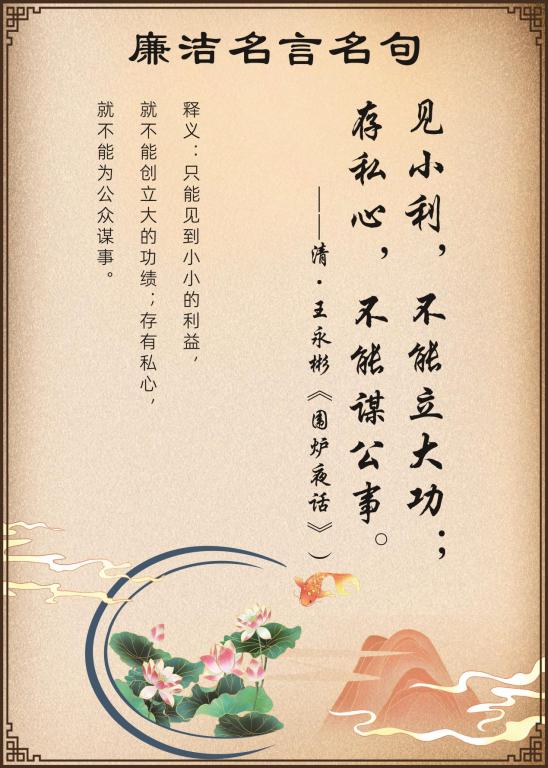 廉洁名言名句
见小利，不能立大功；
存私心，不能谋公事。
——清·王永彬《围炉夜话》）
释义：只能见到小小的利益，
就不能创立大的功绩；存有私心，
就不能为公众谋事。